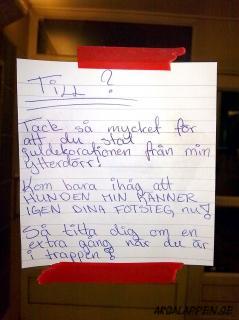 Till ?
Tack så mycket för
att du stal
juldekorationen från min
ytterdörr!
Kom bara ihåg att
HUNDEN MIN KÄNNER
IGEN DINA FOTSTEG nu!
Så titta dig om en
extra gång när du är
i trappen!
ARGALAPPEN.SE